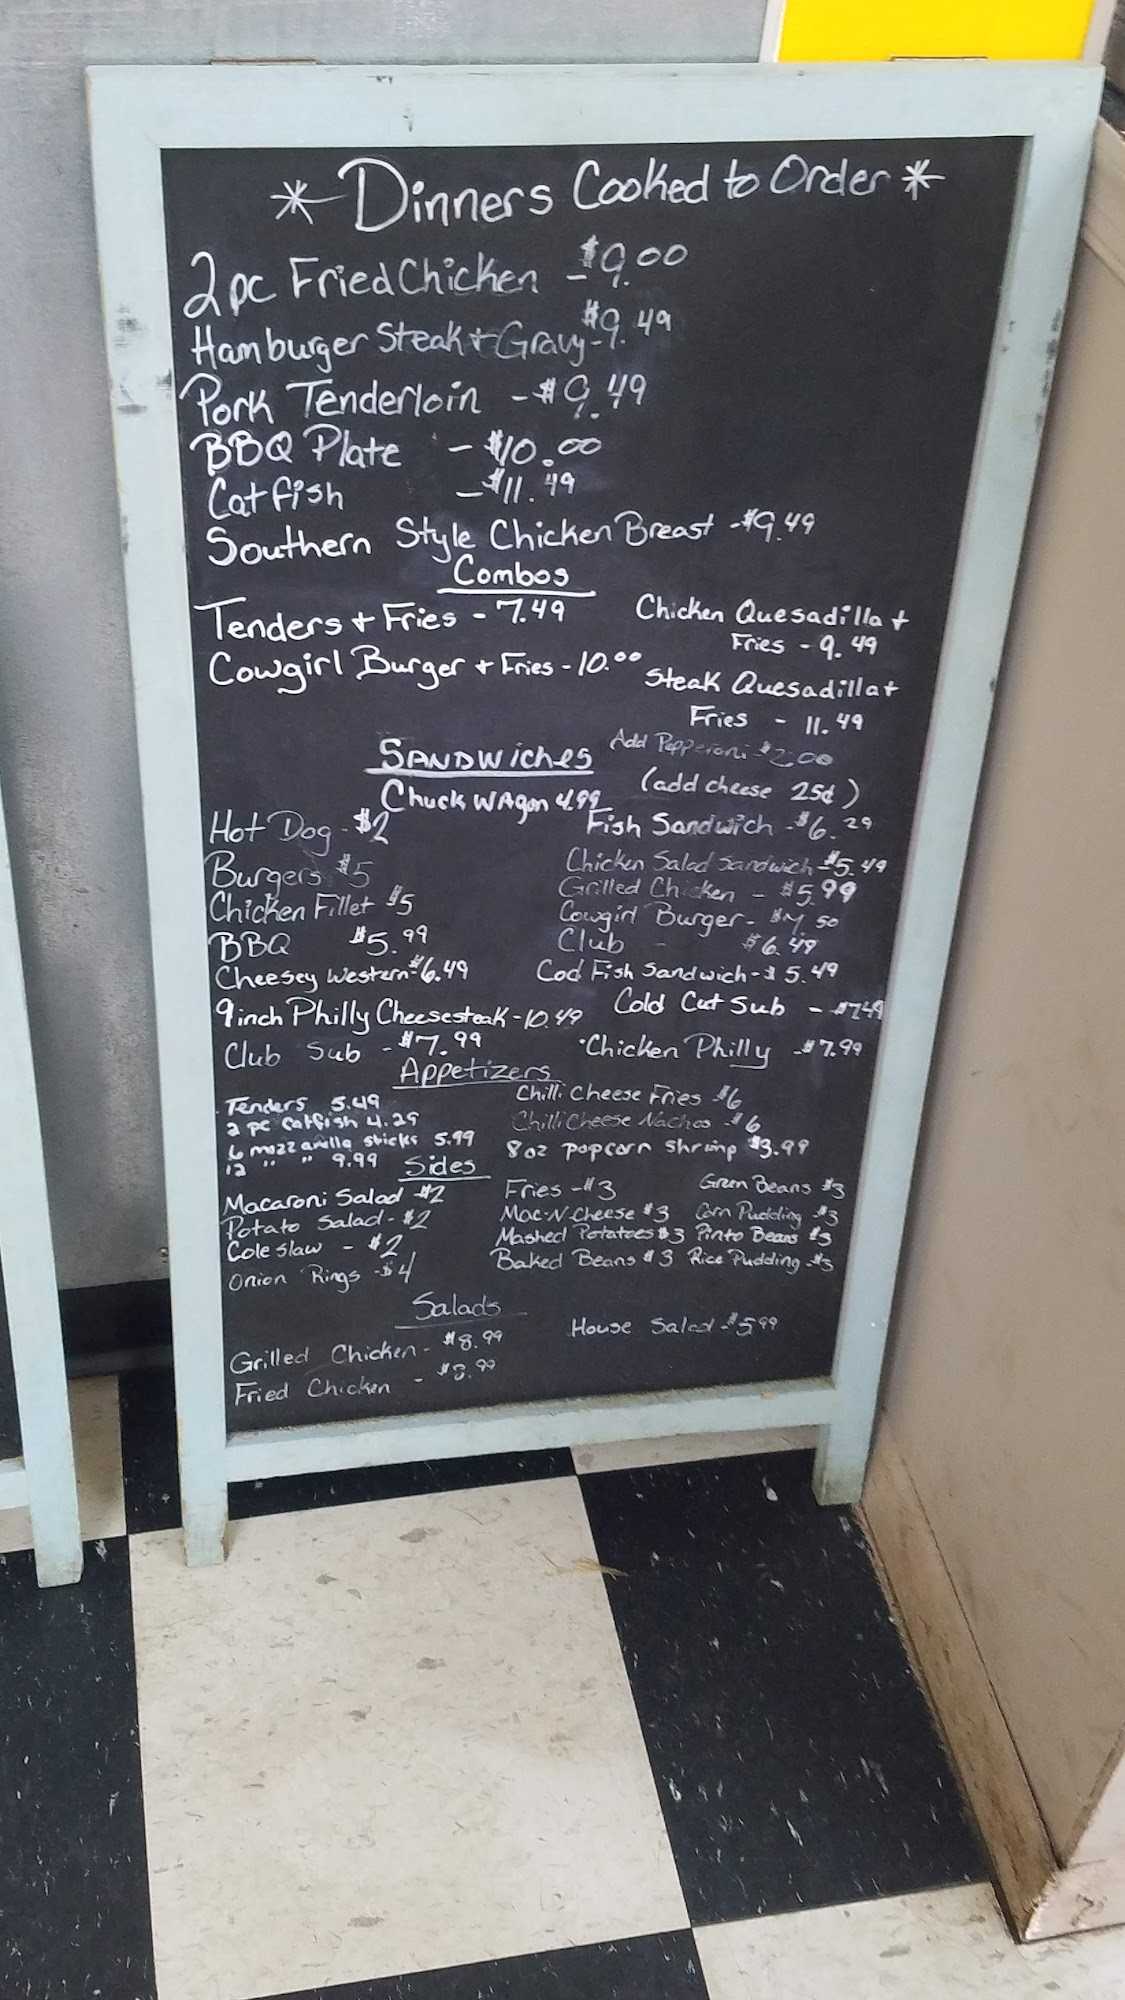 * Dinners Cooked to Order *
2 pc Fried Chicken - $9.00
Hamburger Steak + Gravy - $9.49
Pork Tenderloin - $9.49
BBQ Plate - $10.00
Catfish - $11.49
Southern Style Chicken Breast - $9.49
Combos
Tenders + Fries - 7.49
Cowgirl Burger + Fries - 10.00
Chicken Quesadilla +
Fries - 9.49
Steak Quesadilla +
Fries - 11.49
Add Pepperoni $2.00
SANDWiches
(add cheese 25¢)
Chuck WAgon 4.99
Hot Dog - $2
Burgers $5
Chicken Fillet $5
BBQ $5.99
Cheesey Western - $6.49
9inch Philly Cheesesteak - 10.49
Club Sub - $7.99
Fish Sandwich - $6.29
Chicken Salad Sandwich - $5.49
Grilled Chicken - $5.99
Cowgirl Burger - $7.50
Club - $6.49
Cod Fish Sandwich - $5.49
Cold Cut Sub - $7.49
Chicken Philly - $7.99
Appetizers
Tenders 5.49
2 pc catfish 4.29
6 mozzarella sticks 5.99
12 " " 9.99
Chilli Cheese Fries $6
Chilli Cheese Nachos - $6
8oz popcorn shrimp $3.99
Sides
Macaroni Salad $2
Potato Salad - $2
Cole slaw - $2
Onion Rings - $4
Fries - $3
Mac-N-Cheese $3
Mashed Potatoes $3
Baked Beans $3
Green Beans $3
Corn Pudding $3
Pinto Beans $3
Rice Pudding - $3
Salads
Grilled Chicken - $8.99
Fried Chicken - $8.99
House Salad - $5.99